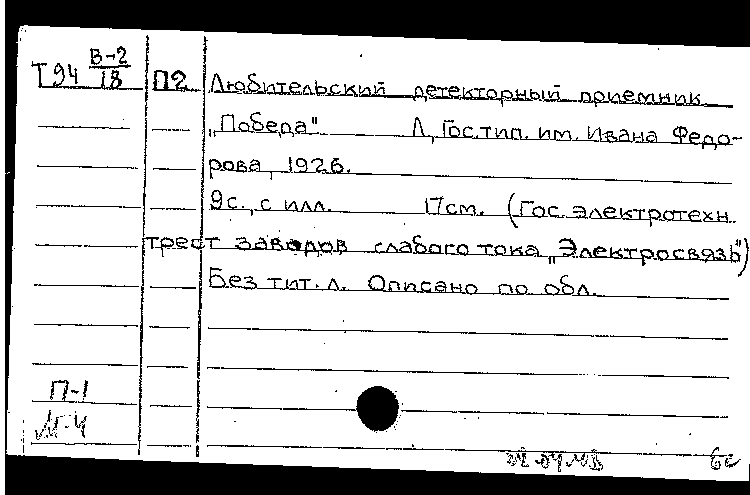 Т94 В-2/18 П2 Любительский детекторный приемник
„Победа" Л, Гос. тип. им. Ивана Федо-
рова, 1926.
9с., с илл. 17см. (Гос. электротехн.
трест заводов слабого тока „Электросвязь")
Без тит. л. Описано по обл.
П-1
М-4